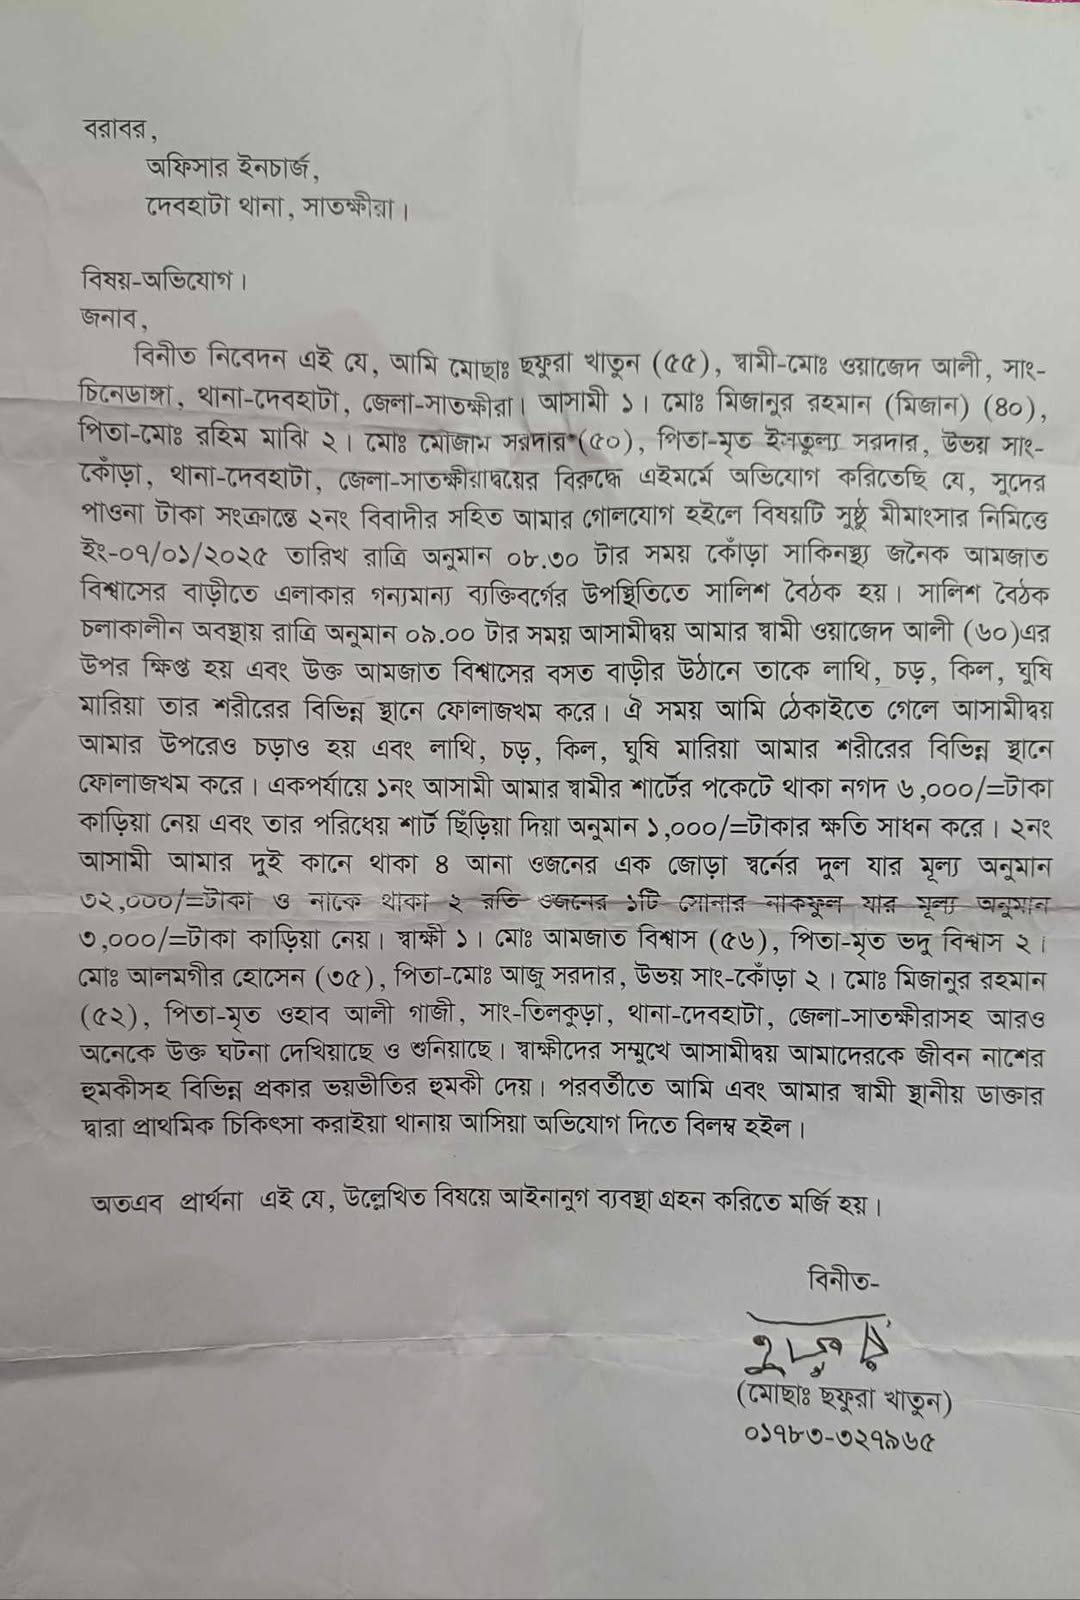 বরাবর,
অফিসার ইনচার্জ,
দেবহাটা থানা, সাতক্ষীরা।
বিষয়-অভিযোগ।
জনাব,
বিনীত নিবেদন এই যে, আমি মোছাঃ ছফুরা খাতুন (৫৫), স্বামী-মোঃ ওয়াজেদ আলী, সাং-
চিনেডাঙ্গা, থানা-দেবহাটা, জেলা-সাতক্ষীরা। আসামী ১। মোঃ মিজানুর রহমান (মিজান) (৪০),
পিতা-মোঃ রহিম মাঝি ২। মোঃ মোজাম সরদার (৫০), পিতা-মৃত ইনতুল্য সরদার, উভয় সাং-
কোঁড়া, থানা-দেবহাটা, জেলা-সাতক্ষীরাদ্বয়ের বিরুদ্ধে এইমর্মে অভিযোগ করিতেছি যে, সুদের
পাওনা টাকা সংক্রান্তে ২নং বিবাদীর সহিত আমার গোলযোগ হইলে বিষয়টি সুষ্ঠু মীমাংসার নিমিত্তে
ইং-০৭/০১/২০২৫ তারিখ রাত্রি অনুমান ০৮.৩০ টার সময় কোঁড়া সাকিনস্থ্য জনৈক আমজাত
বিশ্বাসের বাড়ীতে এলাকার গন্যমান্য ব্যক্তিবর্গের উপস্থিতিতে সালিশ বৈঠক হয়। সালিশ বৈঠক
চলাকালীন অবস্থায় রাত্রি অনুমান ০৯.০০ টার সময় আসামীদ্বয় আমার স্বামী ওয়াজেদ আলী (৬০)এর
উপর ক্ষিপ্ত হয় এবং উক্ত আমজাত বিশ্বাসের বসত বাড়ীর উঠানে তাকে লাথি, চড়, কিল, ঘুষি
মারিয়া তার শরীরের বিভিন্ন স্থানে ফোলাজখম করে। ঐ সময় আমি ঠেকাইতে গেলে আসামীদ্বয়
আমার উপরেও চড়াও হয় এবং লাথি, চড়, কিল, ঘুষি মারিয়া আমার শরীরের বিভিন্ন স্থানে
ফোলাজখম করে। একপর্যায়ে ১নং আসামী আমার স্বামীর শার্টের পকেটে থাকা নগদ ৬,০০০/=টাকা
কাড়িয়া নেয় এবং তার পরিধেয় শার্ট ছিঁড়িয়া দিয়া অনুমান ১,০০০/=টাকার ক্ষতি সাধন করে। ২নং
আসামী আমার দুই কানে থাকা ৪ আনা ওজনের এক জোড়া স্বর্নের দুল যার মূল্য অনুমান
৩২,০০০/=টাকা ও নাকে থাকা ২ রতি ওজনের ১টি সোনার নাকফুল যার মূল্য অনুমান
৩,০০০/=টাকা কাড়িয়া নেয়। স্বাক্ষী ১। মোঃ আমজাত বিশ্বাস (৫৬), পিতা-মৃত ভদু বিশ্বাস ২।
মোঃ আলমগীর হোসেন (৩৫), পিতা-মোঃ আজু সরদার, উভয় সাং-কোঁড়া ২। মোঃ মিজানুর রহমান
(৫২), পিতা-মৃত ওহাব আলী গাজী, সাং-তিলকুড়া, থানা-দেবহাটা, জেলা-সাতক্ষীরাসহ আরও
অনেকে উক্ত ঘটনা দেখিয়াছে ও শুনিয়াছে। স্বাক্ষীদের সম্মুখে আসামীদ্বয় আমাদেরকে জীবন নাশের
হুমকীসহ বিভিন্ন প্রকার ভয়ভীতির হুমকী দেয়। পরবর্তীতে আমি এবং আমার স্বামী স্থানীয় ডাক্তার
দ্বারা প্রাথমিক চিকিৎসা করাইয়া থানায় আসিয়া অভিযোগ দিতে বিলম্ব হইল।
অতএব প্রার্থনা এই যে, উল্লেখিত বিষয়ে আইনানুগ ব্যবস্থা গ্রহন করিতে মর্জি হয়।
বিনীত-
(মোছাঃ ছফুরা খাতুন)
০১৭৮৩-৩২৭৯৬৫